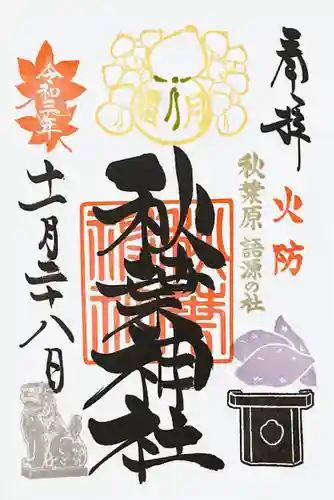 奉拝
火防
秋葉原 語源の社
秋葉神社
令和三年
十一月二十八日